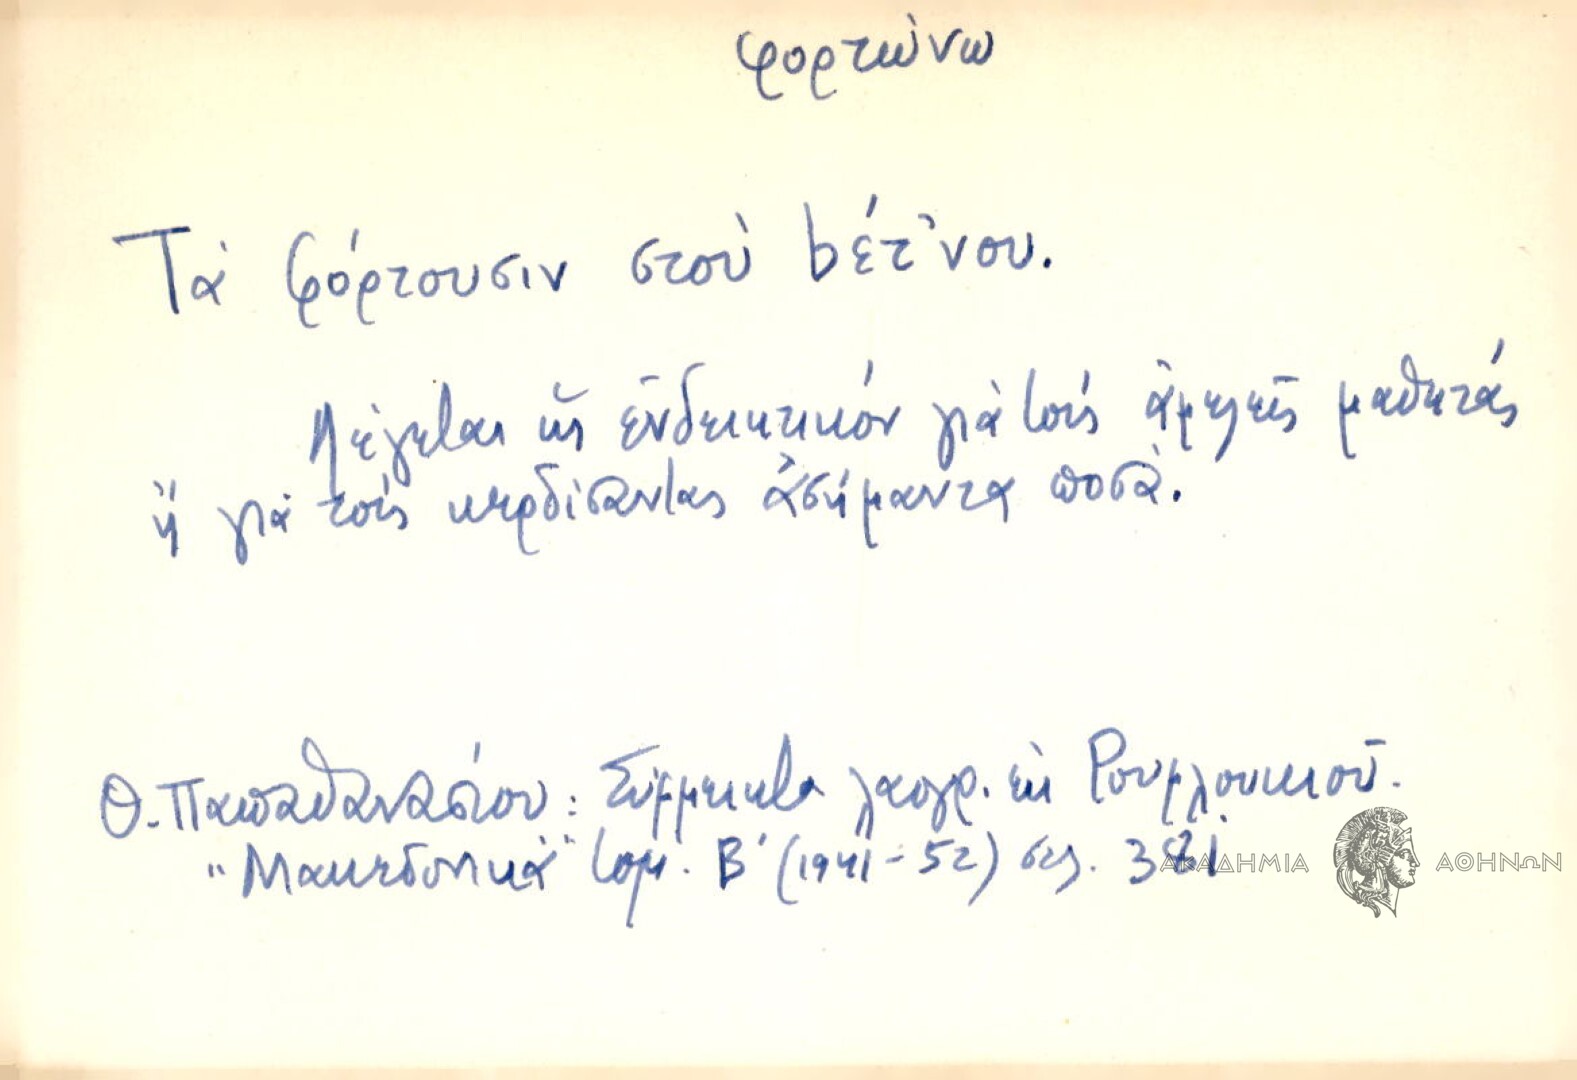 φορτώνω
Τά φόρτουσιν στού bέτ'νου.
Λέγεται ὡς ἐνδεικτικόν γιά τούς ἀμελεῖς μαθητάς
ἤ γιά τούς κερδίσαντας ἀσήμαντα ποσά.
Θ. Παπαθανασίου: Σύμμεικτα λαογρ. ἐκ Ρουμλουκιοῦ.
"Μακεδονικά" τομ. Β' (1941-52) σελ.
ΑΚΑΔΗΜΙΑ ΑΘΗΝΩΝ